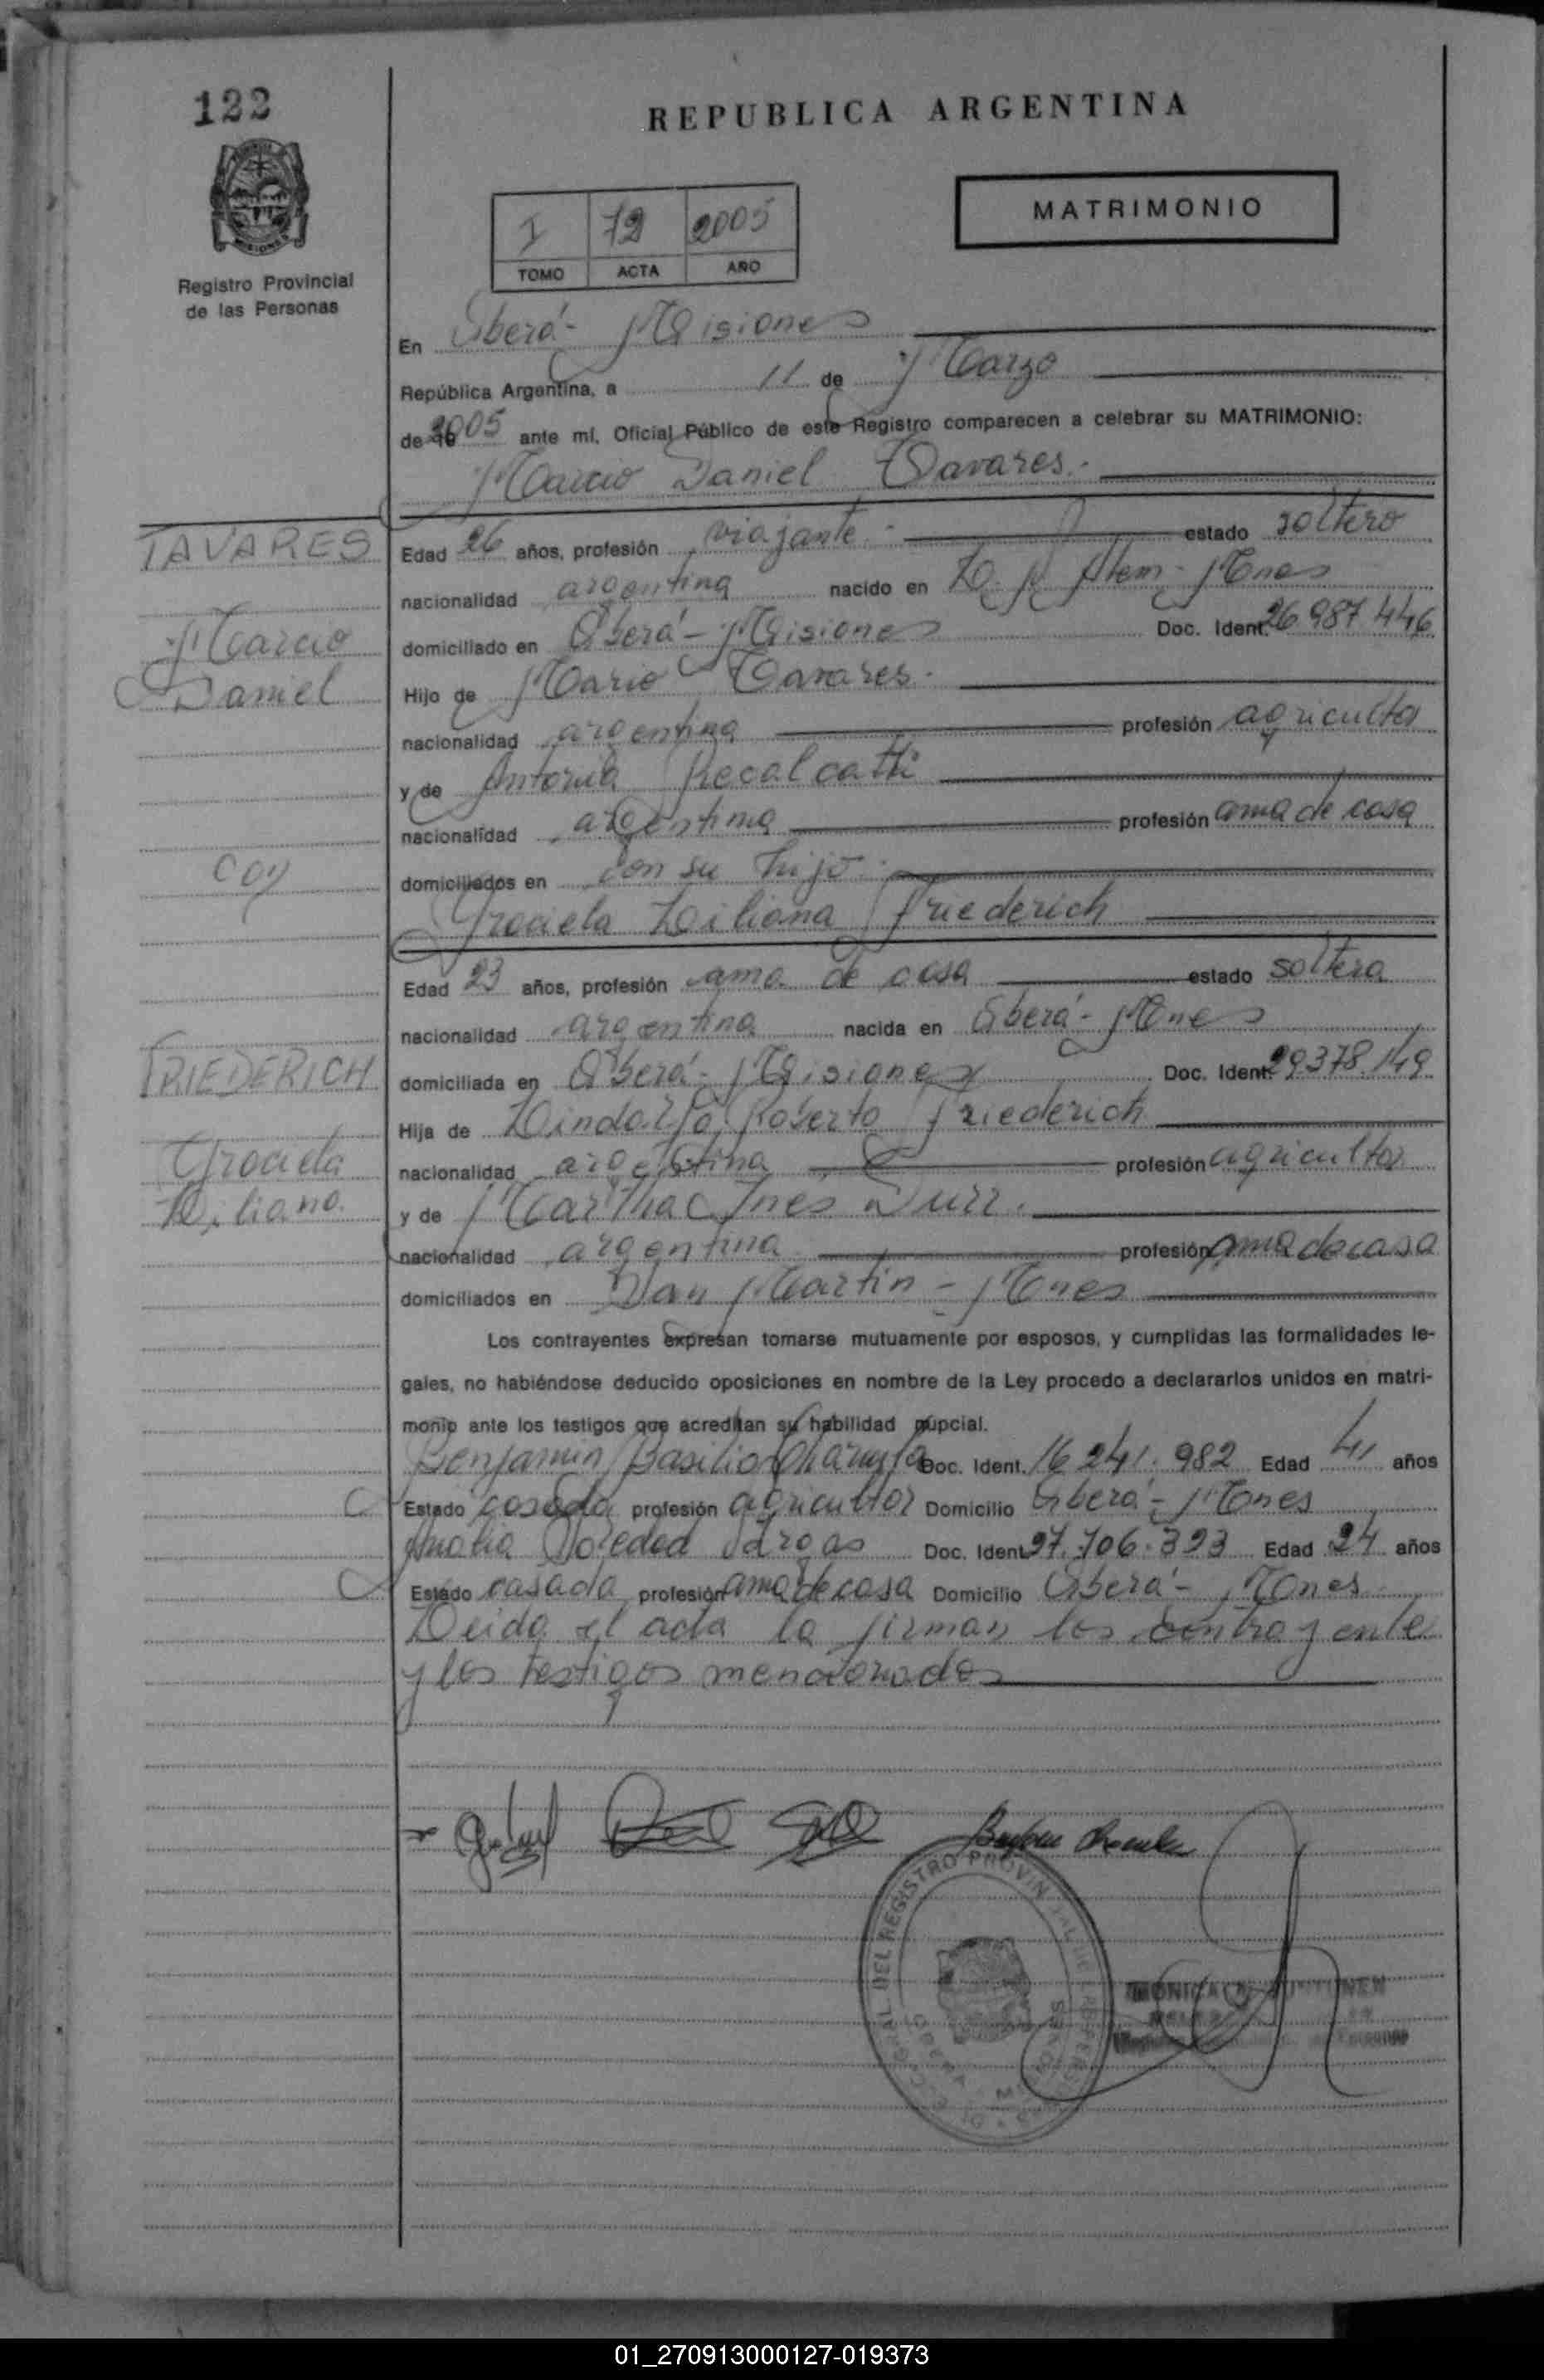 122
REPUBLICA ARGENTINA
MATRIMONIO
I 72 2005
TOMO ACTA AÑO
MISIONES
Registro Provincial
de las Personas
En Oberá - Misiones
República Argentina, a 11 de Marzo
de 2005 ante mí, Oficial Público de este Registro comparecen a celebrar su MATRIMONIO:
Marcio Daniel Tavares.-
TAVARES
Edad 26 años, profesión viajante.- estado soltero
nacionalidad argentina nacido en L. N. Alem - Mnes
Marcio
domiciliado en Oberá - Misiones Doc. Ident. 26 987 446
Daniel
Hijo de Mario Tavares.
nacionalidad argentina profesión agricultor
y de Antonia Recalcatti
nacionalidad argentina profesión ama de casa
con
domiciliados en con su hijo.
Graciela Liliana Friederich
Edad 23 años, profesión ama de casa estado soltera
nacionalidad argentina nacida en Oberá - Mnes
FRIEDERICH
domiciliada en Oberá - Misiones Doc. Ident. 29.378.149
Hija de Lindolfo Roberto Friederich
Graciela
nacionalidad argentina profesión agricultor
Liliana.
y de Martha Inés Durr.
nacionalidad argentina profesión ama de casa
domiciliados en San Martín - Mnes
Los contrayentes expresan tomarse mutuamente por esposos, y cumplidas las formalidades le-
gales, no habiéndose deducido oposiciones en nombre de la Ley procedo a declararlos unidos en matri-
monio ante los testigos que acreditan su habilidad nupcial.
Benjamin Basilio Doc. Ident. 16 241.982 Edad 41 años
Estado casado profesión agricultor Domicilio Oberá - Mnes
Analia Soledad Doc. Ident. 27.706.323 Edad 24 años
Estado casada profesión ama de casa Domicilio Oberá - Mnes
Leida el acta la firman los contrayente
y los testigos mencionados
DEL REGISTRO PROVIN
MONICA
01_270913000127-019373